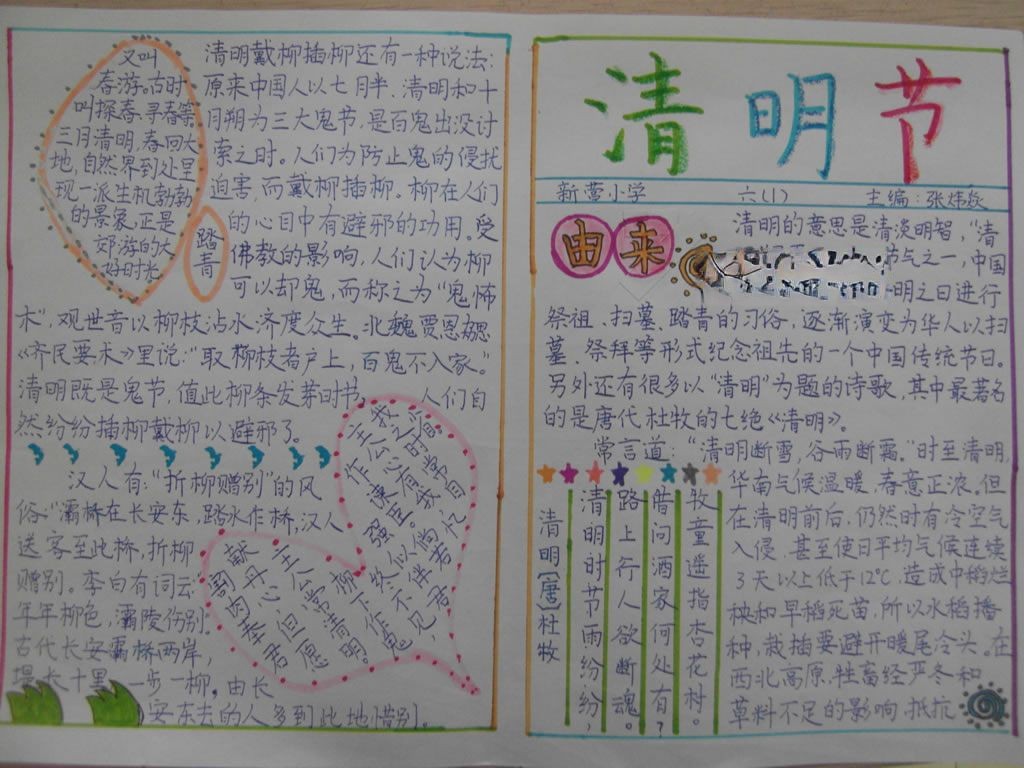 又叫
春游。古时
叫探春、寻春等
三月清明，春回大
地，自然界到处呈
现一派生机勃勃
的景象，正是
郊游的大
好时光
踏青
清明戴柳插柳还有一种说法：
原来中国人以七月半、清明和十
月朔为三大鬼节，是百鬼出没讨
索之时。人们为防止鬼的侵扰
迫害，而戴柳插柳。柳在人们
的心目中有避邪的功用。受
佛教的影响，人们认为柳
可以却鬼，而称之为“鬼怖
木”，观世音以柳枝沾水济度众生。北魏贾思勰
《齐民要术》里说：“取柳枝著户上，百鬼不入家。”
清明既是鬼节，值此柳条发芽时书
人们自
然纷纷插柳戴柳以避邪了。
汉人有：“折柳赠别”的风
俗：“灞桥在长安东，跨水作桥，汉人
送客至此桥，折柳
赠别。李白有词云：
年年柳色，灞陵伤别。
古代长安灞桥两岸，
堤长十里，一步一柳，由长
安东去的人多到此地惜别。
割肉奉君
献丹心，但愿
主公常清明。
柳下作鬼
终不见，
强似伴君
作谏臣。倘若
主公心有我，忆
我之时常自
省
清明节
新营小学
六(1)
主编：张炜
由来
清明的意思是清淡明智，“清
节气之一，中国
明之日进行
祭祖、扫墓、踏青的习俗，逐渐演变为华人以扫
墓、祭拜等形式纪念祖先的一个中国传统节日。
另外还有很多以“清明”为题的诗歌，其中最著名
的是唐代杜牧的七绝《清明》。
常言道：“清明断雪，谷雨断霜。”时至清明，
华南气候温暖，春意正浓。但
在清明前后，仍然时有冷空气
入侵，甚至使日平均气候连续
3天以上低于12℃，造成中稻烂
秧和早稻死苗，所以水稻播
种、栽插要避开暖尾冷头。在
西北高原，牲畜经严冬和
草料不足的影响，抵抗
清明〔唐〕杜牧
清明时节雨纷纷，
路上行人欲断魂。
借问酒家何处有？
牧童遥指杏花村。